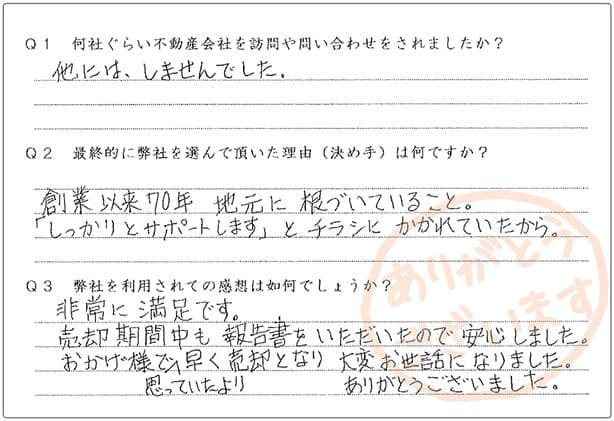 Q1 何社ぐらい不動産会社を訪問や問い合わせをされましたか?
他には、しませんでした。
Q2 最終的に弊社を選んで頂いた理由(決め手)は何ですか?
創業以来70年 地元に根づいていること。
「しっかりとサポートします」とチラシにかかれていたから。
Q3 弊社を利用されての感想は如何でしょうか?
非常に満足です。
売却期間中も報告書をいただいたので安心しました。
おかげ様で、早く売却となり 大変お世話になりました。
思っていたより ありがとうございました。
ありがとう
ございます